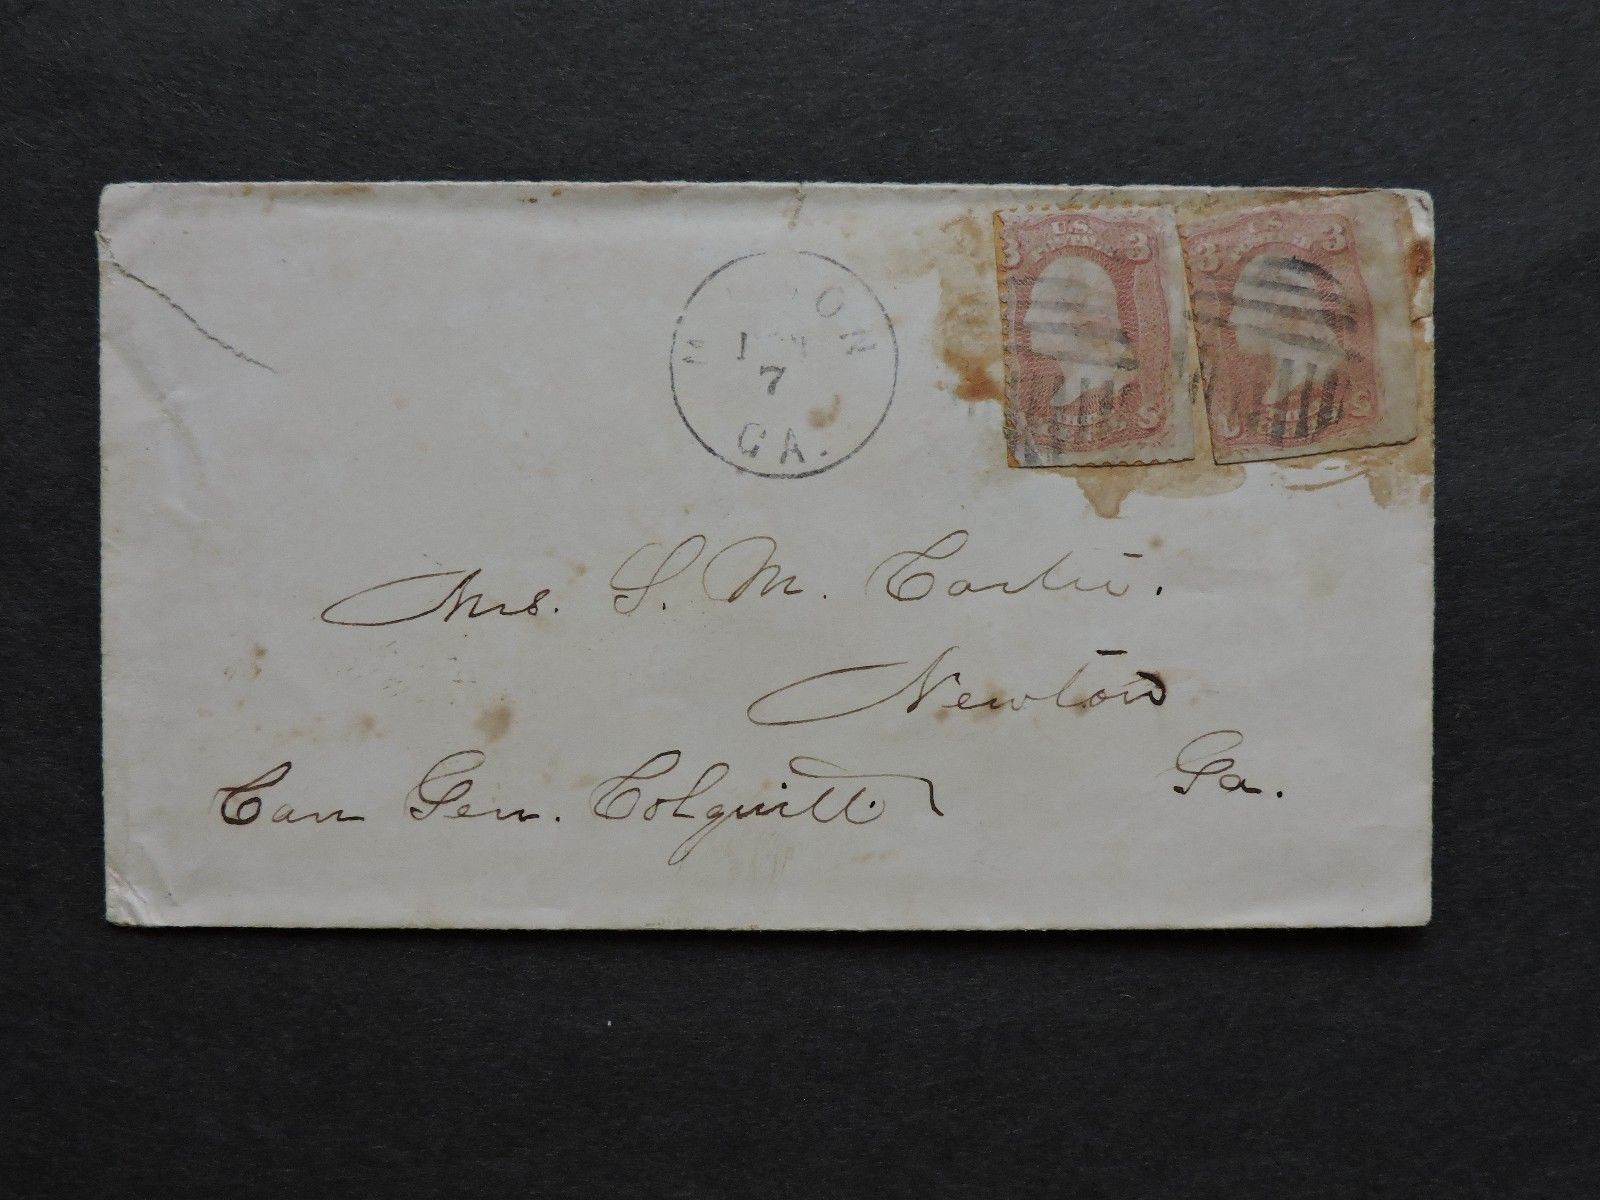 U.S.
3 3
3 3
M ON
7
GA.
Mrs. S. M.
Newton
Ga.
Care Gen. Colquitt.